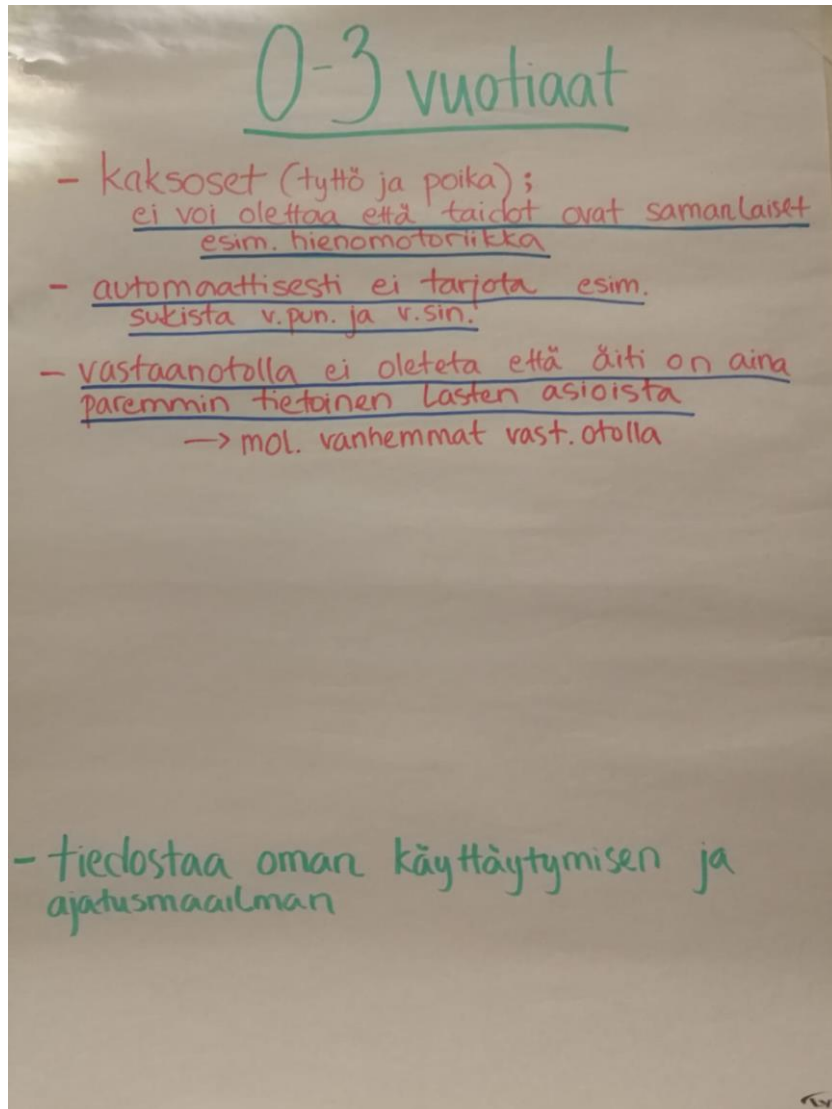 0-3 vuotiaat
- kaksoset (tyttö ja poika);
ei voi olettaa että taidot ovat samanlaiset
esim. hienomotoriikka
- automaattisesti ei tarjota esim.
sukista v.pun. ja v.sin.
- vastaanotolla ei oleteta että äiti on aina
paremmin tietoinen lasten asioista
→ mol. vanhemmat vast.otolla
- tiedostaa oman käyttäytymisen ja
ajatusmaailman